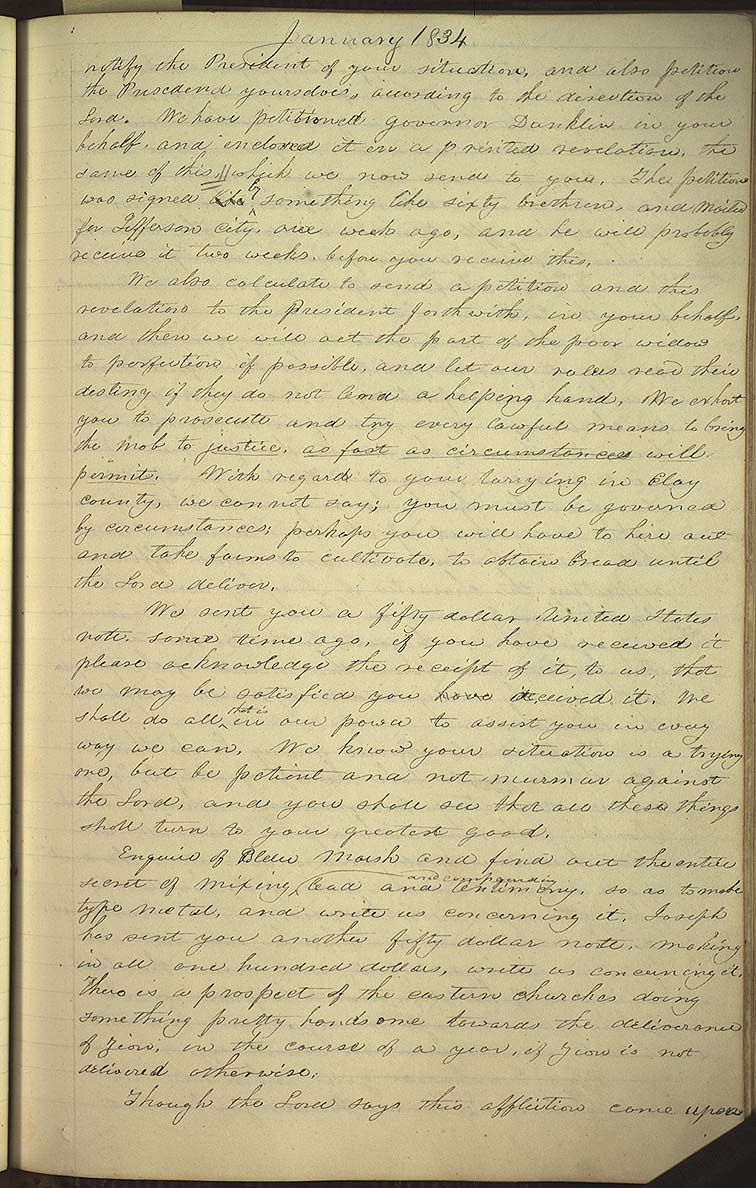 January 1834
notify the President of your situation, and also petition
the Presedend yourselves, according to the direction of the
Lord. We have petitioned governor Dunklin in your
behalf, and inclosed it in a printed revelation, the
same of this, which we now send to you. The petition
was signed by something like sixty brethren, and mailed
for Jefferson city, one week ago, and he will probibly
receive it two weeks, before you receive this.
We also calculate to send a petition and this
revelation to the President forthwith, in your behalf,
and then we will act the part of the poor widow
to perfection if possible, and let our rulers read their
destiny if they do not lend a helping hand. We exhort
you to prosecute and try every lawful means to bring
the mob to justice, as fast as circumstances will
permit. With regard to your tarrying in Clay
county, we can not say; you must be governed
by circumstances; perhaps you will have to hire out
and take farms to cultivate, to obtain bread until
the Lord deliver.
We sent you a fifty dollar United States
note, some time ago, if you have received it
please acknowledge the receipt of it, to us, that
we may be satisfied you received it. We
shall do all that is in our power to assist you in every
way we can. We know your situation is a trying
one, but be patient and not murmur against
the Lord, and you shall see that all these things
shall turn to your greatest good.
Enquire of Marsh and find out the entire
secret of mixing and compounding lead and antimony, so as to make
type metal, and write us concerning it. Joseph
has sent you another fifty dollar note, making
in all one hundred dollars, write us concerning it.
There is a prospect of the eastern churches doing
something pretty handsome towards the deliverance
of Zion, in the course of a year, if Zion is not
delivered otherwise.
Though the Lord says this affliction came upon